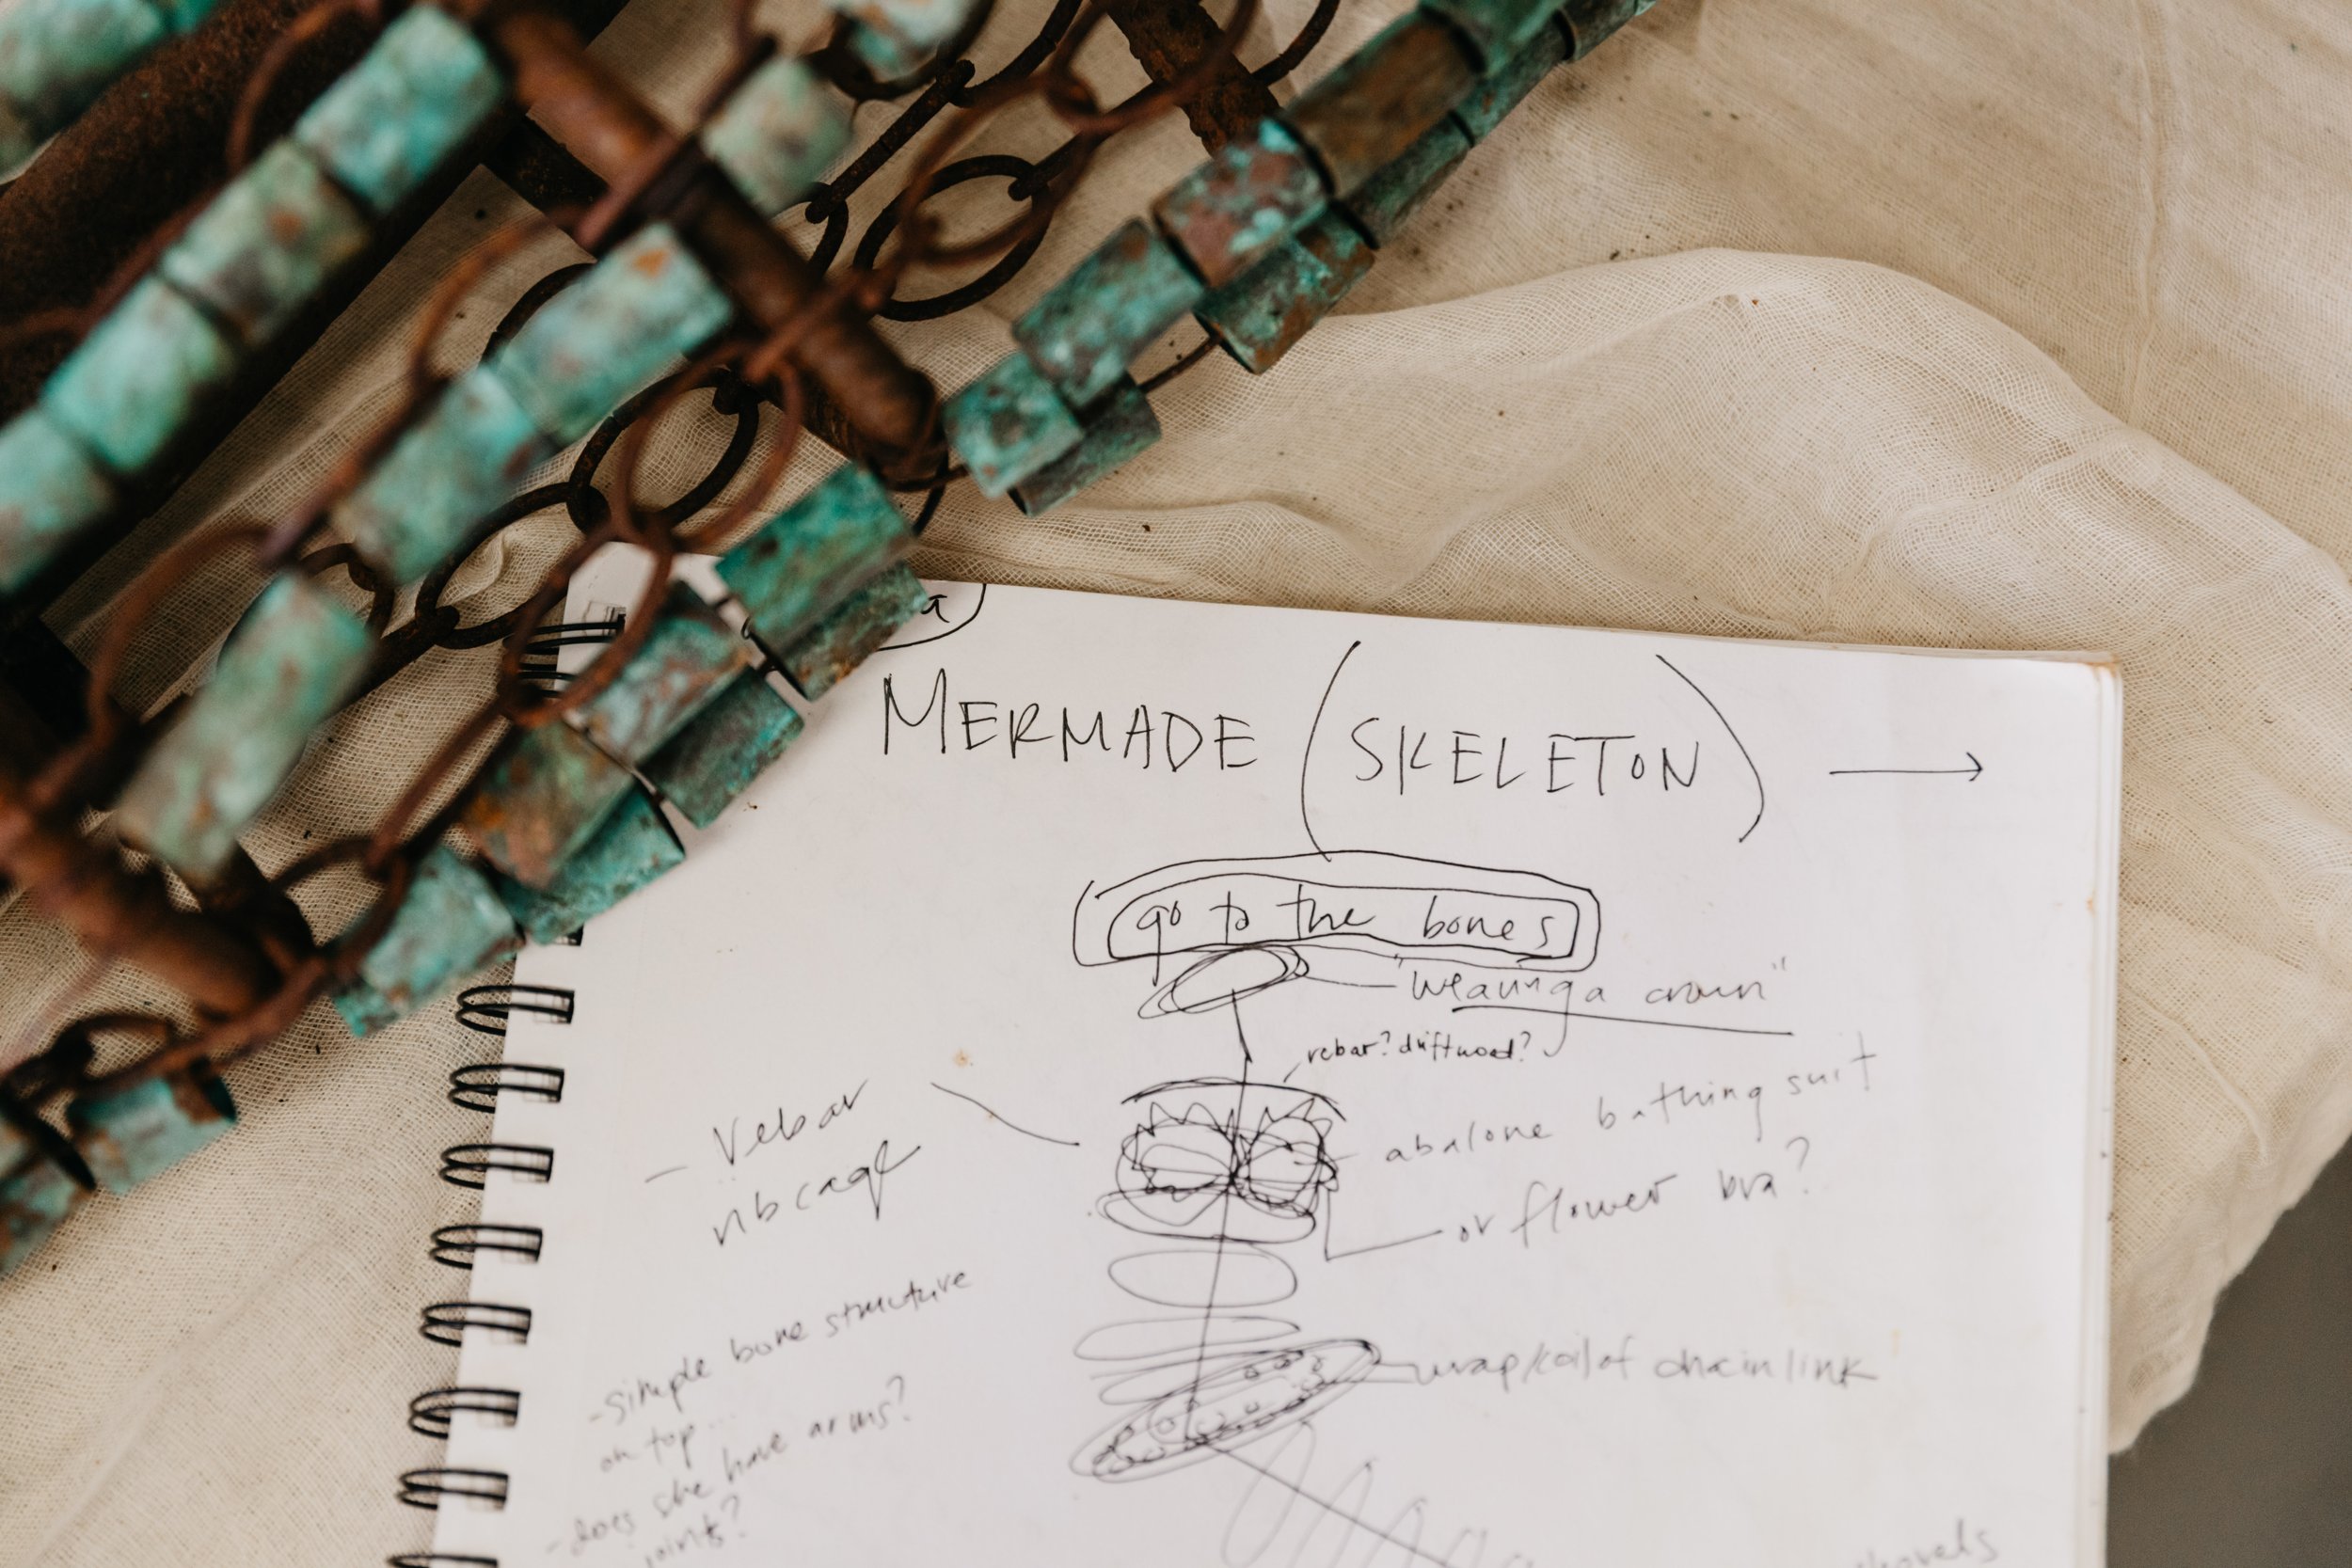 a
MERMADE (SKELETON) →
go to the bones
"Wearing a crown"
rebar? driftwood?
- rebar
ribcage
abalone bathing suit
or flower bra?
- simple bone structure
on top...
wrap/coil of chain link
- does she have arms?
joints?
shovels